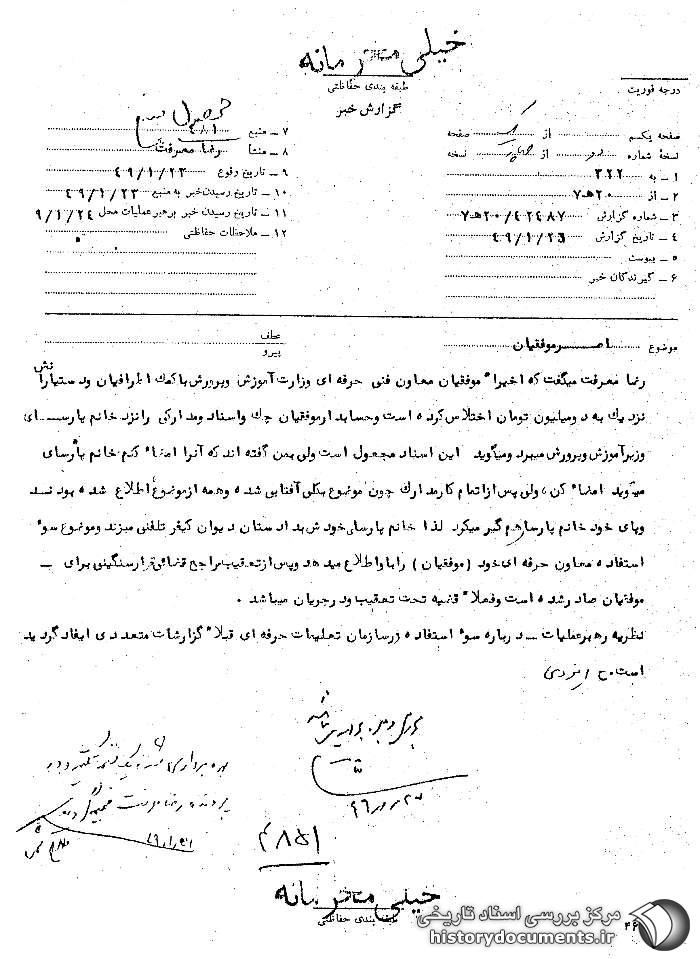 خیلی محرمانه
طبقه بندی حفاظتی
گزارش خبر
درجه فوریت
صفحه یکم از یک صفحه
نسخه شماره دو از نسخه
۱ ـ به ۳۲۲
۲ ـ از ۲۰ﻫ۷
۳ ـ شماره گزارش ۷ﻫ۲۰/۴۲۴۸۷
۴ ـ تاریخ گزارش ۴۹/۱/۲۶
۵ ـ پیوست
۶ ـ گیرندگان خبر
۷ ـ منبع ۴۸۱
۸ ـ منشأ رضا معرفت
۹ ـ تاریخ وقوع ۴۹/۱/۲۳
۱۰ ـ تاریخ رسیدن خبر به منبع ۴۹/۱/۲۳
۱۱ ـ تاریخ رسیدن خبر برهبر عملیات محل ۹/۱/۲۴
۱۲ ـ ملاحظات حفاظتی
موضوع موفقیان
عطف
پیرو
رضا معرفت میگفت که اخیراً موفقیان معاون فنی حرفه ای وزارت آموزش وپرورش باکمک اطرافیان ودستیارانش
نزدیک به دومیلیون تومان اختلاس کرده است وحسابدارموفقیان چک واسناد ومدارکی رانزد خانم پارسای
وزیرآموزش وپرورش میبرد ومیگوید این اسناد مجعول است ولی بمن گفته اند که آنرا امضاء کنم خانم پارسای
میگوید امضاء کن ، ولی پس ازاتمام کارمدارک چون موضوع بکلی آفتابی شده وهمه ازموضوع اطلاع شده بودند
وپای خود خانم پارساهم گیر میکرد لذا خانم پارسای خودش بدادستان دیوان کیفر تلفنی میزند وموضوع سوء
استفاده معاون حرفه ای خود (موفقیان) رابااطلاع میدهد وپس ازتعقیب مراجع قضائی قرارسنگینی برای ـ
موفقیان صادرشده است وفعلاً قضیه تحت تعقیب ودرجریان میباشد .
نظریه رهبرعملیات ـ درباره سوء استفاده درسازمان تعلیمات حرفه ای قبلاً گزارشات متعددی ایفاد گردید
است
پرونده رضا معرفت
۴۸۵۱
خیلی محرمانه
طبقه بندی حفاظتی
۴۶
مرکز بررسی اسناد تاریخی
historydocuments.ir